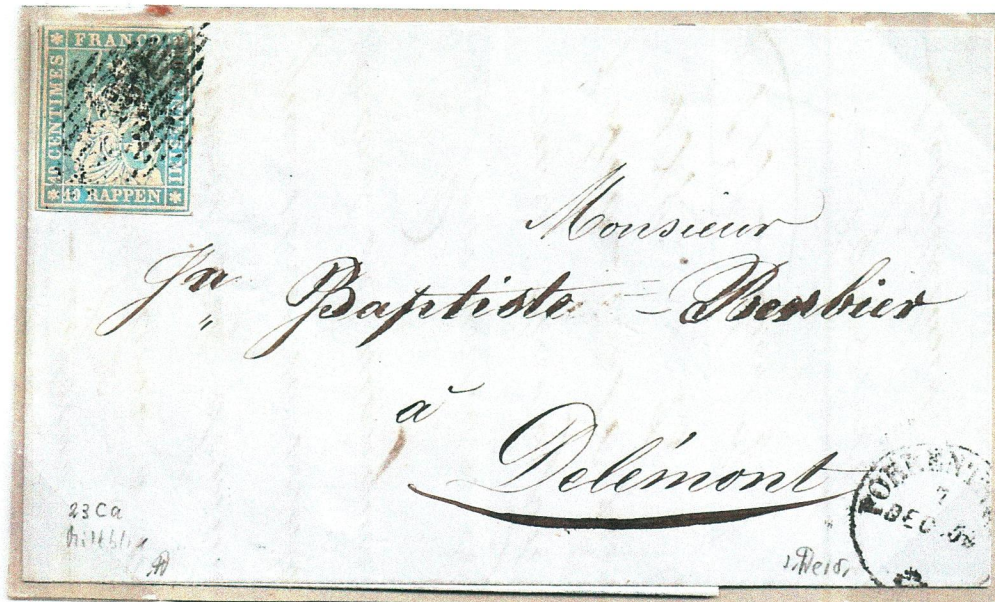 FRANCO
10 CENTIMES
10 RAPPEN
Monsieur
Jn Baptiste = Berbier
à
Delémont
PORRENTR
7
DEC
23 Ca